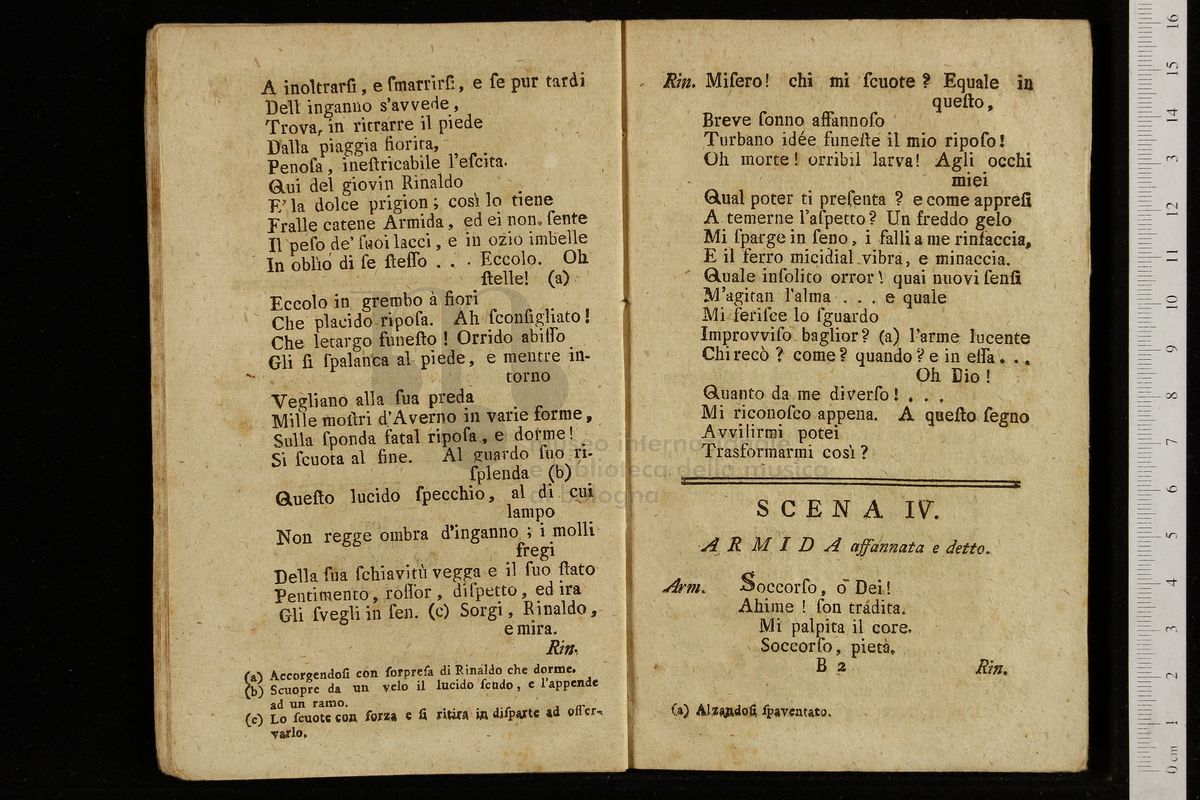 A inoltrarſi, e ſmarrirſi, e ſe pur tardi
Dell inganno s'avvede,
Trova, in ritrarre il piede
Dalla piaggia fiorita,
Penoſa, ineſtricabile l'eſcita.
Qui del giovin Rinaldo
E' la dolce prigion; così lo tiene
Fralle catene Armida, ed ei non ſente
Il peſo de' ſuoi lacci, e in ozio imbelle
In oblìo di ſe ſteſſo . . . Eccolo. Oh
ſtelle! (a)
Eccolo in grembo à fiori
Che placido ripoſa. Ah ſconſigliato!
Che letargo funeſto! Orrido abiſſo
Gli ſi ſpalanca al piede, e mentre in-
torno
Vegliano alla ſua preda
Mille moſtri d'Averno in varie forme,
Sulla ſponda fatal ripoſa, e dorme!
Si ſcuota al fine. Al guardo ſuo ri-
ſplenda (b)
Queſto lucido ſpecchio, al di cui
lampo
Non regge ombra d'inganno; i molli
fregi
Della ſua ſchiavitù vegga e il ſuo ſtato
Pentimento, roſſor, diſpetto, ed ira
Gli ſvegli in ſen. (c) Sorgi, Rinaldo,
e mira.
Rin.
(a) Accorgendoſi con ſorpreſa di Rinaldo che dorme.
(b) Scuopre da un velo il lucido ſcudo, e l'appende
ad un ramo.
(c) Lo ſcuote con forza e ſi ritira in diſparte ad oſſer-
varlo.
Rin. Miſero! chi mi ſcuote? Equale in
queſto,
Breve ſonno affannoſo
Turbano idée funeſte il mio ripoſo!
Oh morte! orribil larva! Agli occhi
miei
Qual poter ti preſenta? e come appreſi
A temerne l'aſpetto? Un freddo gelo
Mi ſparge in ſeno, i falli a me rinfaccia,
E il ferro micidial vibra, e minaccia.
Quale inſolito orror! quai nuovi ſenſi
M'agitan l'alma . . . e quale
Mi feriſce lo ſguardo
Improvviſo baglior? (a) l'arme lucente
Chi recò? come? quando? e in eſſa . . .
Oh Dio!
Quanto da me diverſo! . . .
Mi riconoſco appena. A queſto ſegno
Avvilirmi potei
Trasformarmi così?
SCENA IV.
ARMIDA affannata e detto.
Arm. Soccorſo, ò Dei!
Ahime! ſon tràdita.
Mi palpita il core.
Soccorſo, pietà.
B 2 Rin.
(a) Alzandoſi ſpaventato.
museo internazionale
e biblioteca della musica
di bologna
16
15
14
13
12
11
10
9
8
7
6
5
4
3
2
1
0 cm